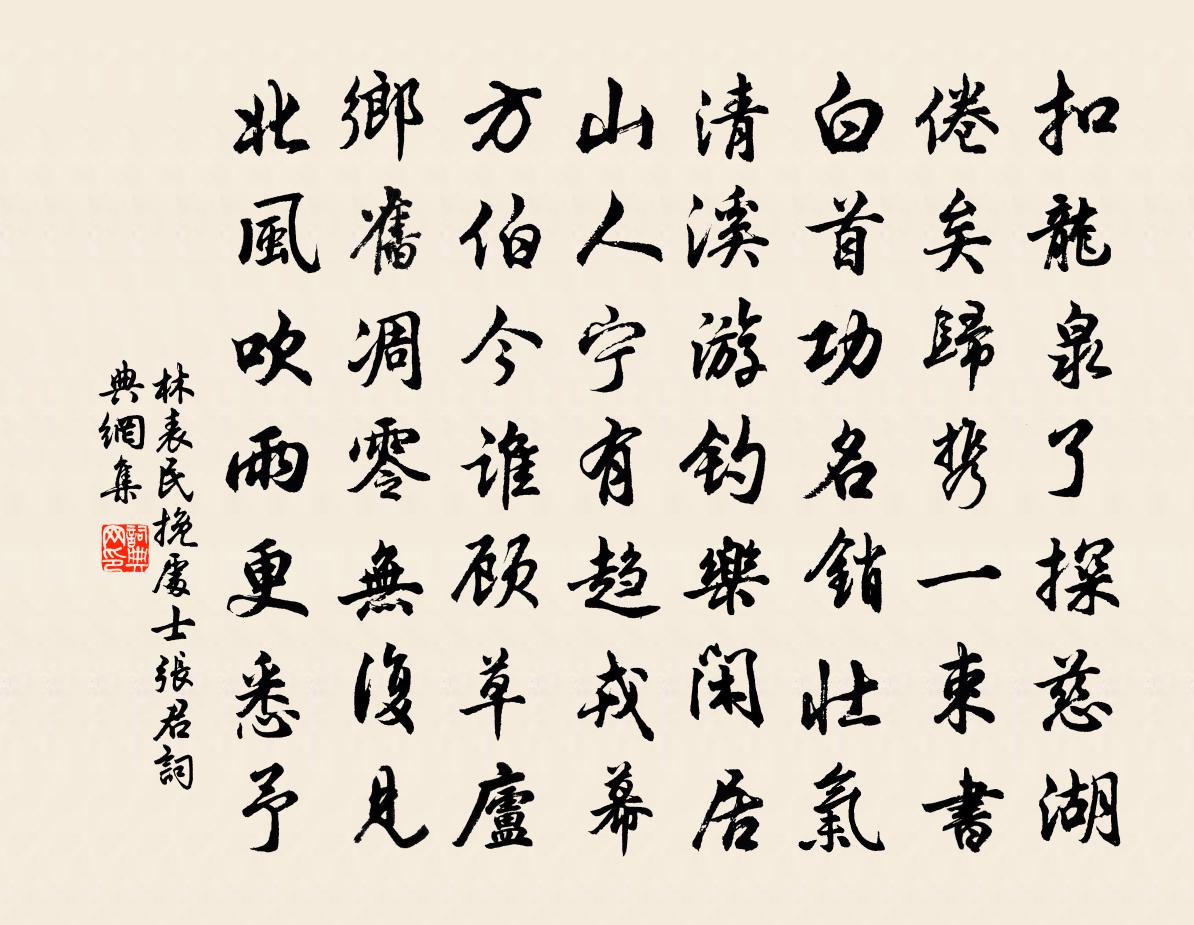 扣龍泉了探慈湖
倦矣歸携一束書
白首功名銷壯氣
清溪游釣樂閑居
山人宁有趋戎幕
方伯今誰顾草廬
鄉舊凋零無復見
北風吹雨更悉予
林表民挽處士張君詞
典網集
詞典網印